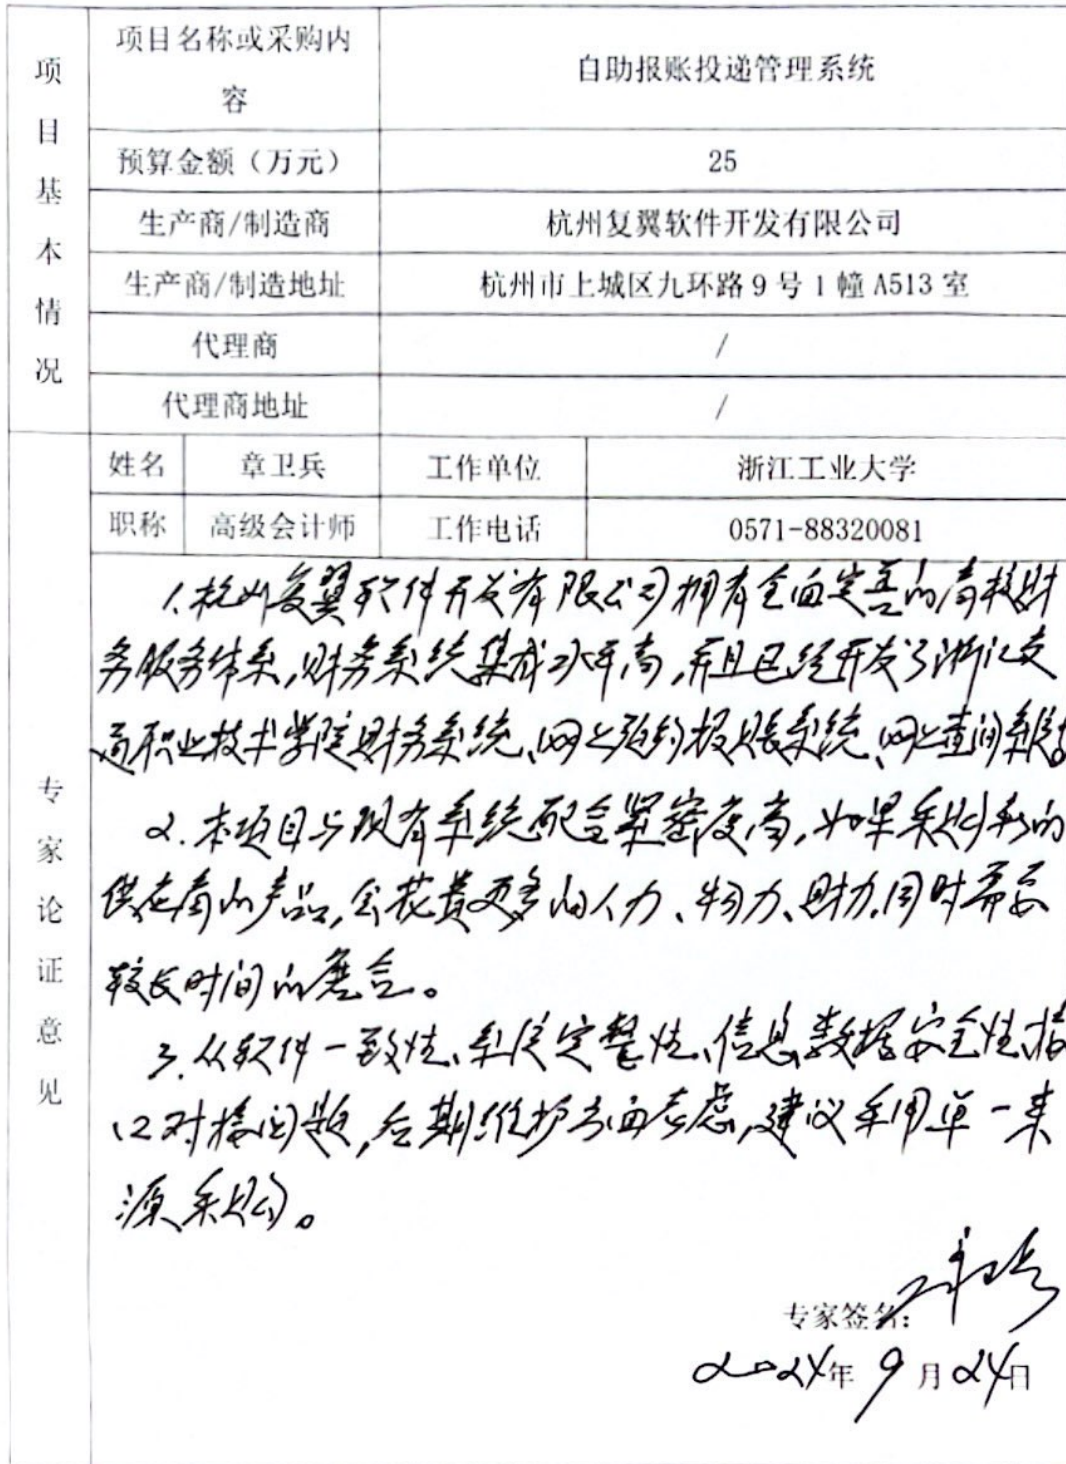 项目基本情况
项目名称或采购内容
自助报账投递管理系统
预算金额（万元） 25
生产商/制造商 杭州复翼软件开发有限公司
生产商/制造地址 杭州市上城区九环路9号1幢A513室
代理商 /
代理商地址 /
专家论证意见
姓名 章卫兵 工作单位 浙江工业大学
职称 高级会计师 工作电话 0571-88320081
1.杭州复翼软件开发有限公司拥有全面完善的高校财
务服务体系,财务系统集成水平高,并且已经开发了浙江交
通职业技术学院财务系统、网上预约报账系统、网上查询系统
2.本项目与现有系统配合紧密度高,如果采购新的
供应商的产品,会花费更多的人力、物力、财力,同时需要
较长时间的磨合。
3.从软件一致性、系统完整性、信息数据安全性、接
口对接问题,后期维护方面考虑,建议采用单一来
源采购。
专家签名: 章卫兵
2024年9月24日